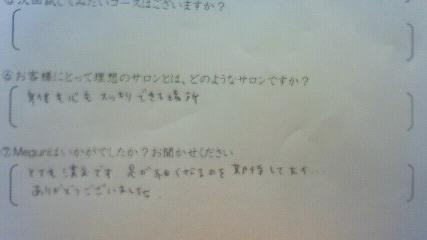 ⑤次回試してみたいコースはございますか?
⑥お客様にとって理想のサロンとは、どのようなサロンですか?
身体も心もスッキリできる場所
⑦Meguriはいかがでしたか?お聞かせください
とても満足です。足が細くなるのを期待してます…
ありがとうございました。